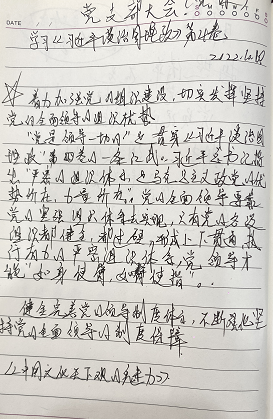 DATE
党支部大会
学习《习近平谈治国理政》第四卷
2022.
着力加强党的组织建设，切实发挥坚持
党的全面领导的组织优势
"党是领导一切的"是贯穿《习近平谈治国
理政》第四卷的一条红线。习近平总书记指
出"严密的组织体系是马克思主义政党的优
势所在、力量所在"。党的全面领导要靠
党的坚强组织体系去实现，只有党的各级
组织都健全、都过硬，形成上下贯通、执
行有力的严密组织体系，党的领导才
能"如身使臂，如臂使指"。
健全完善党的领导制度体系，不断强化坚
持党的全面领导的制度保障